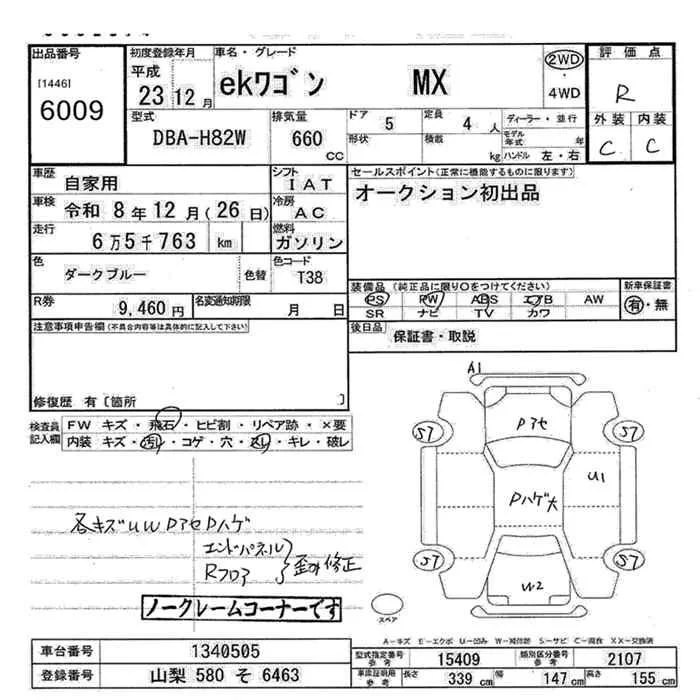 出品番号 初度登録年月 車名・グレード 評価点
[1446] 平成 2WD
6009 23 12月 ekワゴン MX ・ R
4WD
型式 排気量 ドア 5 定員 4 人 ディーラー・並行 外装 内装
DBA-H82W 660 CC 形状 積載 kg モデル年式 年 C C
ハンドル 左・右
車歴 自家用 シフト IAT セールスポイント(正常に機能するものに限ります)
車検 令和 8年 12月(26日) 冷房 AC オークション初出品
走行 6万5千763 km 燃料 ガソリン
色 ダークブルー 色替 色コード T38
装備品(純正品に限り○をつけてください) 新車保証書
R券 9,460円 名変通知期限 月 日 PS PW ABS エアB AW 有・無
SR ナビ TV カワ
注意事項申告欄(不具合内容等は具体的に記入して下さい) 後日品 保証書・取説
修復歴 有〔箇所 〕
検査員記入欄 FW キズ・飛石・ヒビ割・リペア跡・×要
内装 キズ・汚れ・コゲ・穴・スレ・キレ・破レ
A1
Pアセ
S7 S7
U1
Pハゲ大
S7 S7
U2
各キズUWPアセPハゲ
エンドパネル
Rフロア 歪み修正
ノークレームコーナーです
スペア
A-キズ E-エクボ U-凹み W-補修跡 S-サビ C-腐食 XX-交換済
車台番号 1340505 型式指定番号 参考 15409 類別区分番号 参考 2107
登録番号 山梨 580 そ 6463 車庫証明用 参考 長さ 339 cm 幅 147 cm 高さ 155 cm